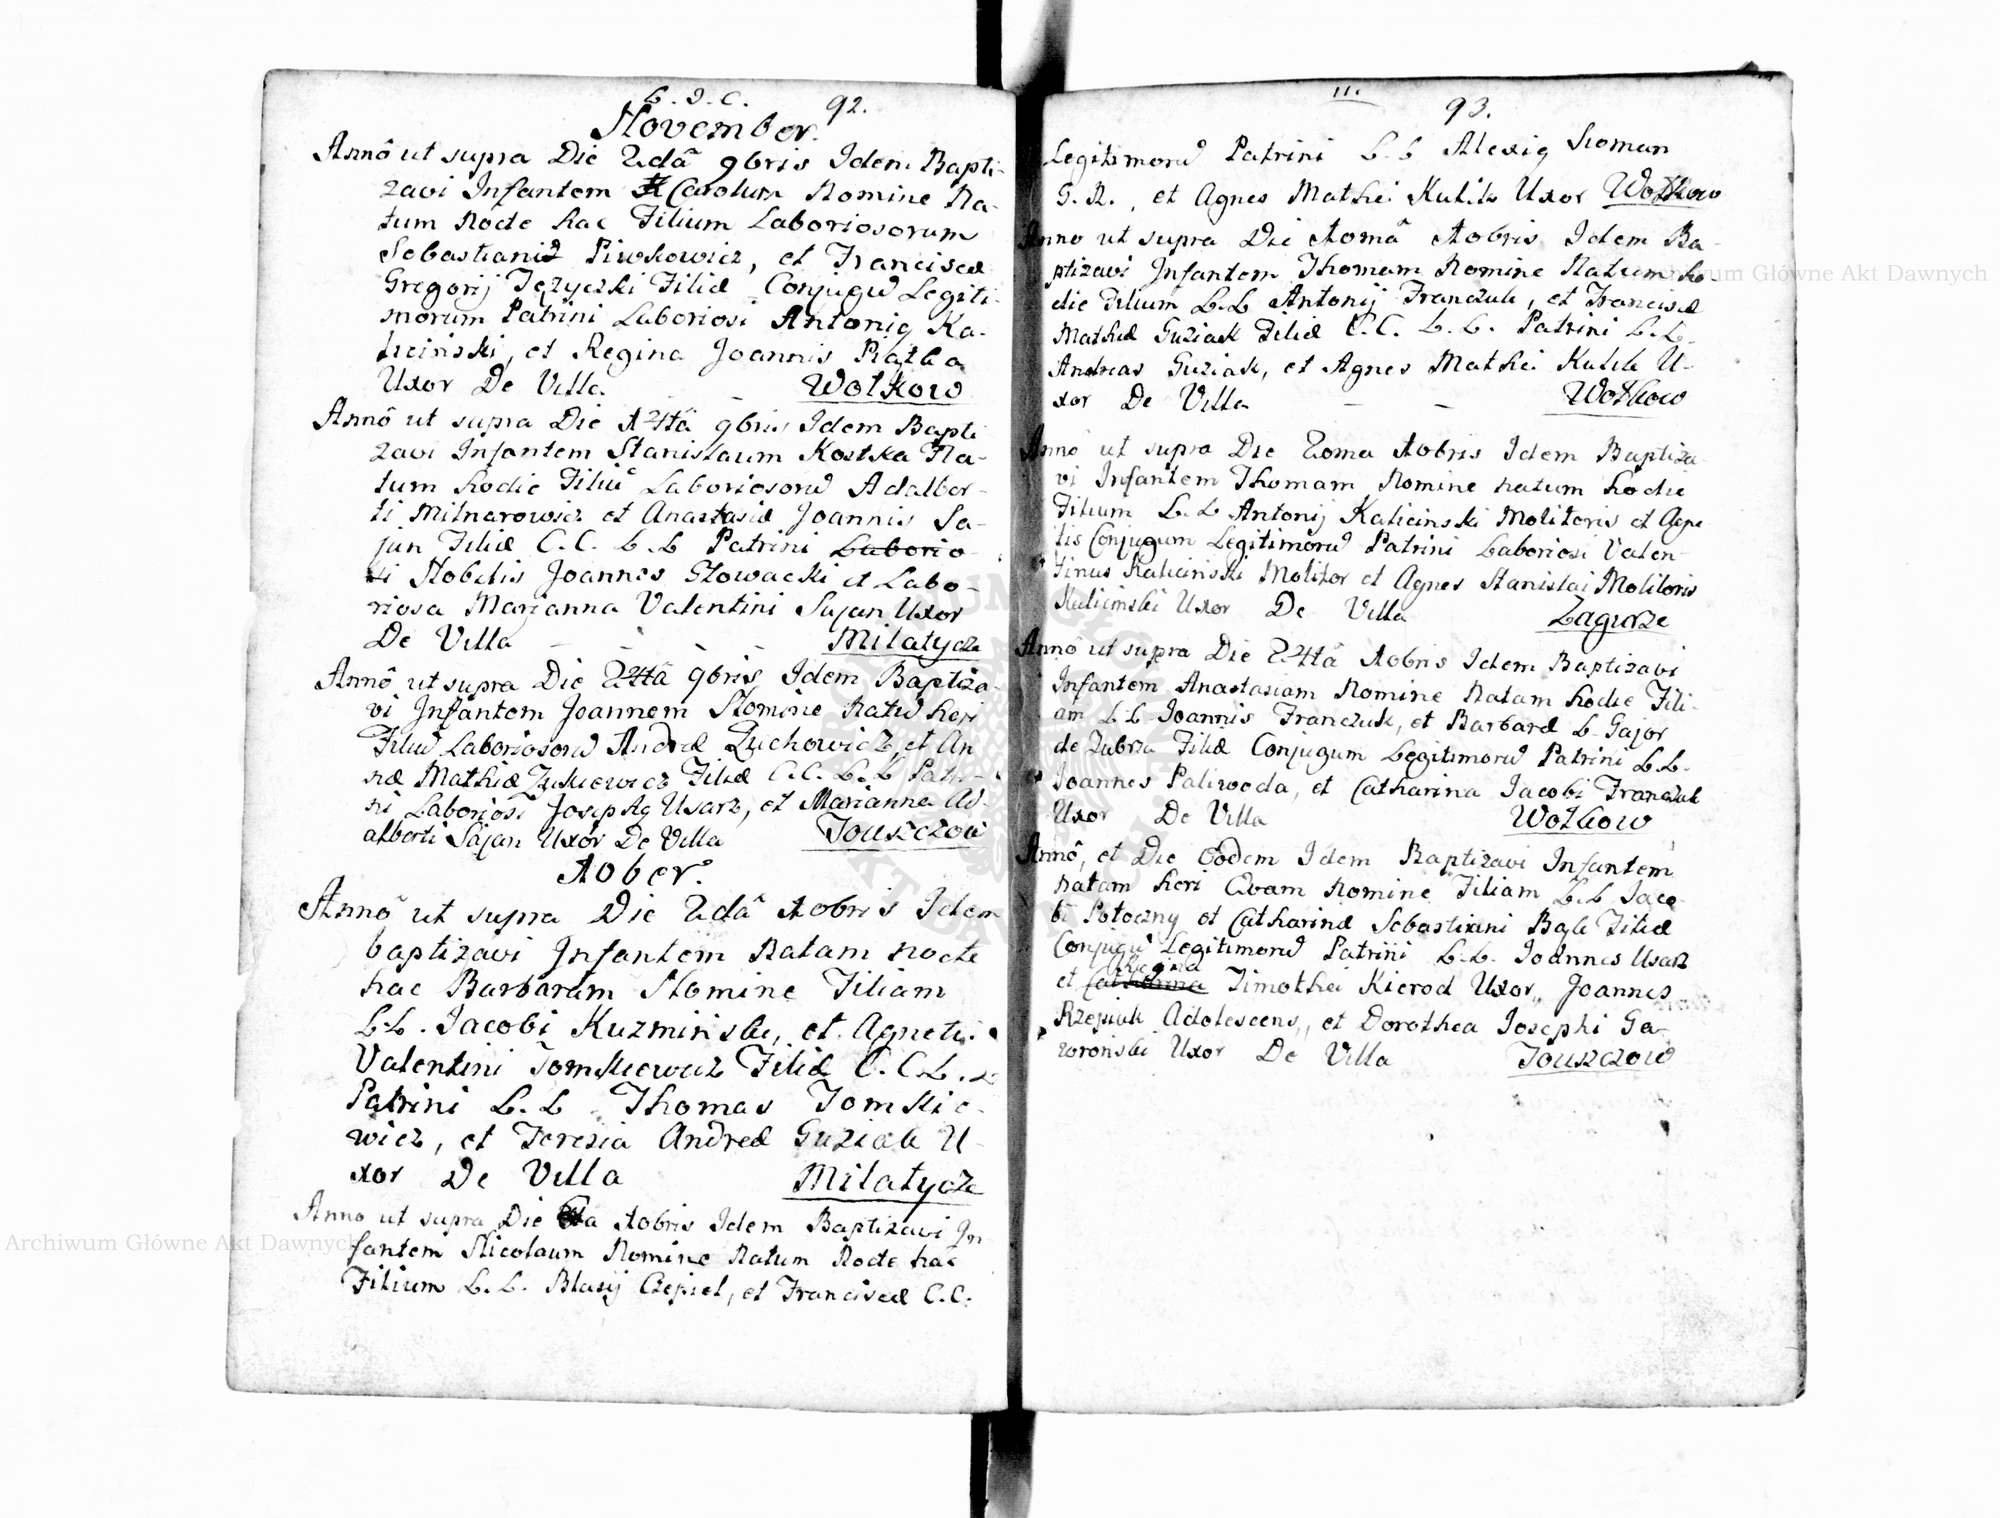 L. J. C. 92.
November.
Annô ut supra Die 22dâ 9bris Idem Bapti-
zavi Infantem Carolum Nomine Na-
tum Nocte hac Filium Laboriosorum
Sebastiani Piwkowicz, et Franciscæ
Gregorij Tężycki Filiæ Conjugũ Legiti-
morum Patrini Laboriosi Antonig Ka-
liciński, et Regina Joannis Piątka
Uxor De Villa Wołkow
Annô ut supra Die 14tâ 9bris Idem Bapti
zavi Infantem Stanislaum Kostka Na-
tum hodie Filiũ Laboriosorũ Adalber-
ti Milnarowicz et Anastasiæ Joannis Sa-
jan Filiæ C. C. L. L Patrini Laborio-
si Nobilis Joannes Głowacki et Labo-
riosa Marjanna Valentini Sajan Uxor
De Villa Milatycze
Annô ut supra Die 24tâ 9bris Idem Baptiza-
vi Infantem Joannem Nomine Natũ heri
Filiũ Laboriosorũ Andreæ Zuchowicz, et An
næ Mathiæ Zukiewicz Filiæ C. C. L. L Patri-
ni Laboriosi Josephg Usarz, et Marianna Ad-
alberti Sajan Uxor De Villa Touszczow
Xober.
Annô ut supra Die 2dâ Xobris Idem
baptizavi Infantem Natam nocte
hac Barbaram Nomine Filiam
L. L. Jacobi Kuzmiński, et Agnetis
Valentini Tomkiewicz Filiæ C. C. L. L
Patrini L. L Thomas Tomkie-
wicz, et Teresia Andreæ Guziak U-
xor De Villa Milatycze
Anno ut supra Die Xobris Idem Baptizavi In-
fantem Nicolaum Nomine Natum Nocte hac
Filium L. L. Blasij Ciepiel, et Franciscæ C. C.
11.
93.
Legitimorũ Patrini L. L Alexig Roman
G. R., et Agnes Mathei Kulik Uxor Wołkow
Anno ut supra Die Xobris Idem Ba-
ptizavi Infantem Thomam Nomine Natum ho-
die Filium L. L Antonij Franczuk, et Franciscæ
Mathiæ Guziak Filiæ C. C. L. L. Patrini L. L.
Andreas Guziak, et Agnes Mathei Kulik U-
xor De Villa Wołkow
Anno ut supra Die 20ma Xobris Idem Baptiza-
vi Infantem Thomam Nomine natum hodie
Filium L. L Antonij Kaliciński Molitoris et Agne
tis Conjugum Legitimorũ Patrini Laboriosi Valen-
tinus Kaliciński Molitor et Agnes Stanislai Molitoris
Kaliciński Uxor De Villa Zagurze
Annô ut supra Die 24tâ Xobris Idem Baptizavi
Infantem Anastasiam Nomine Natam hodie Fili-
am L L Joannis Franczuk, et Barbaræ L Gajor
de Zubrza Filiæ Conjugum Legitimorũ Patrini L. L.
Joannes Paliwoda, et Catharina Jacobi Franczuk
Uxor De Villa Wołkow
Annô, et Die Eodem Idem Baptizavi Infantem
natam heri Evam Nomine Filiam L. L Jaco-
bi Potoczny et Catharinæ Sebastiani Bąk Filiæ
Conjugũ Legitimorũ Patrini L. L. Joannes Usarz
Regina
et Catharina Timothei Kierod Uxor,, Joannes
Rzepiak Adolescens,, et Dorothea Josephi Ga-
woroński Uxor De Villa Touszczow
Archiwum Główne Akt Dawnych
Archiwum Główne Akt Dawnych
ARCHIWUM GŁÓWNE AKT DAWNYCH